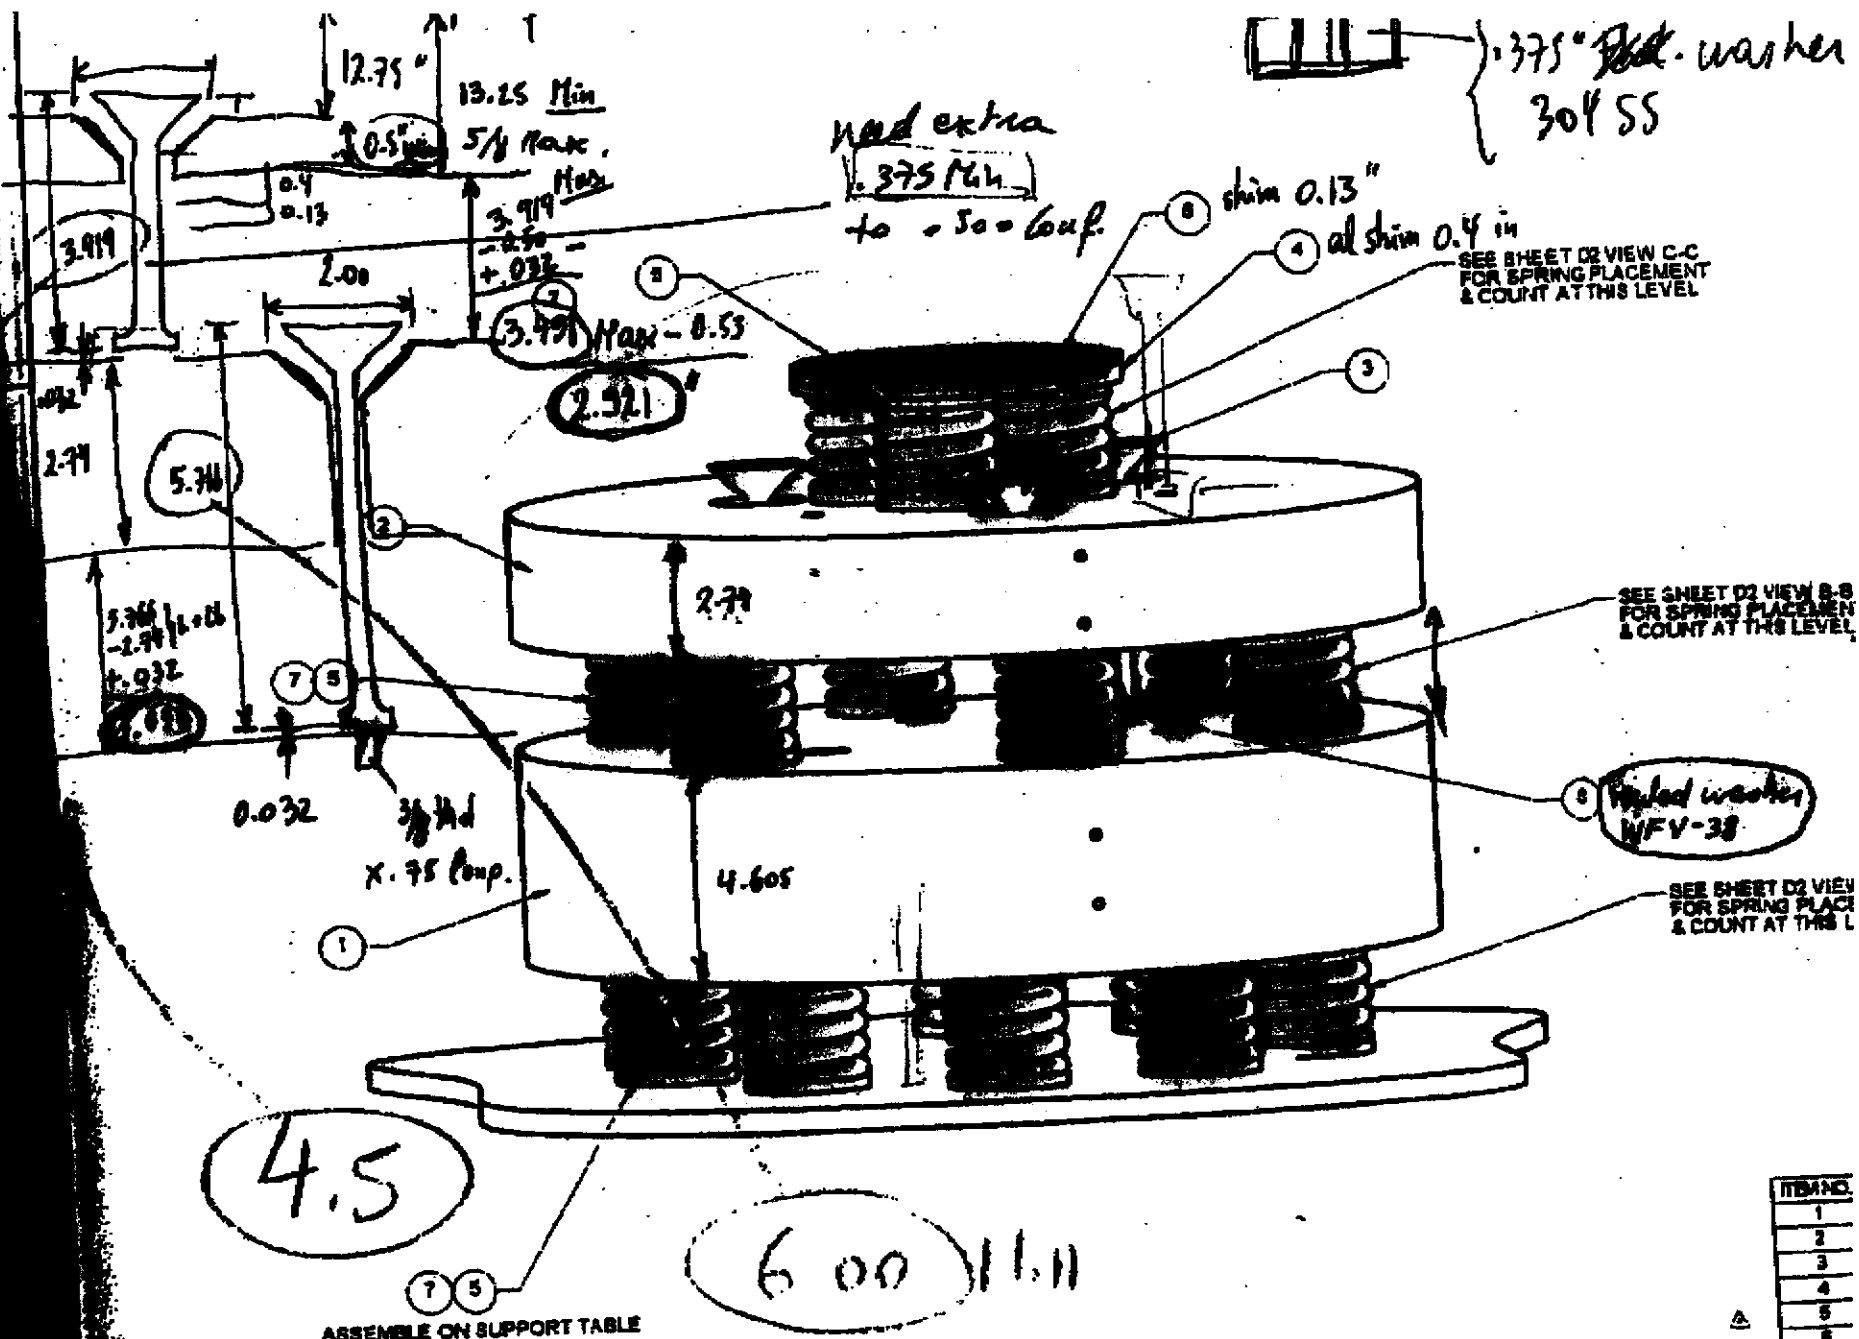 12.75"
13.25 Min
5/8 Max.
0.5"
0.4
0.13
3.919
3.919 Max
- 0.50
+.032
3.451 Max - 0.53
2.921"
2.00
.032
2.74
5.766
5.766
-2.74
+.032
0.032
3/8
x .75
need extra
.375 Min
to
.375" washer
304 SS
6 shim 0.13"
4 al shim 0.4 in
SEE SHEET D2 VIEW C-C
FOR SPRING PLACEMENT
& COUNT AT THIS LEVEL
3
2
2.74
SEE SHEET D2 VIEW B-B
FOR SPRING PLACEMENT
& COUNT AT THIS LEVEL
7 5
washer
WFV-38
4.605
1
SEE SHEET D2 VIEW
FOR SPRING PLACE
& COUNT AT THIS L
4.5
6 00
7 5
ASSEMBLE ON SUPPORT TABLE
ITEM NO.
1
2
3
4
5
6